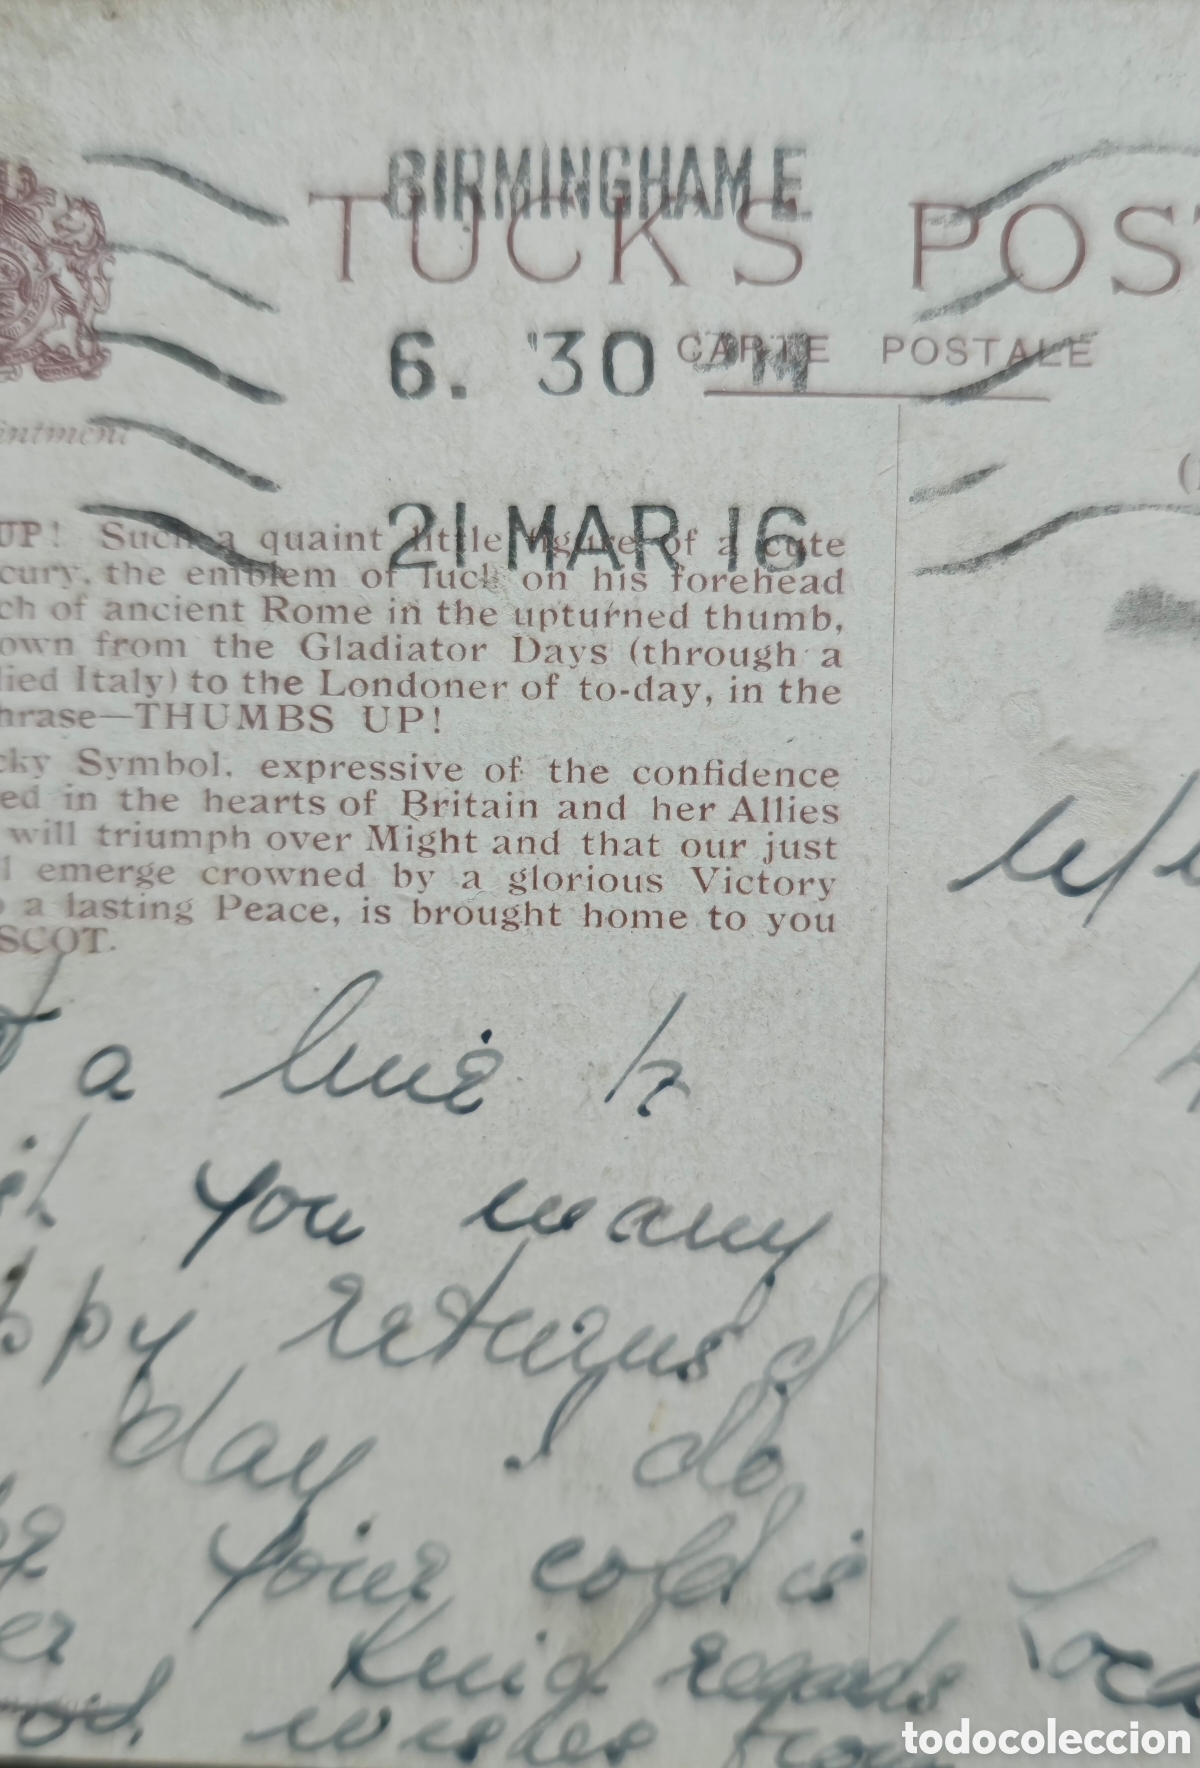 BIRMINGHAM E.
TUCK'S POST
6. 30 PM
CARTE POSTALE
21 MAR 16
intment
UP! Such a quaint little figure of a cute
cury, the emblem of luck on his forehead
ch of ancient Rome in the upturned thumb,
own from the Gladiator Days (through a
lied Italy) to the Londoner of to-day, in the
hrase—THUMBS UP!
cky Symbol, expressive of the confidence
ed in the hearts of Britain and her Allies
will triumph over Might and that our just
l emerge crowned by a glorious Victory
o a lasting Peace, is brought home to you
SCOT.
a line to
you many
ppy returns of
day I do
your cold is
er Kind regards
wishes from
todocoleccion